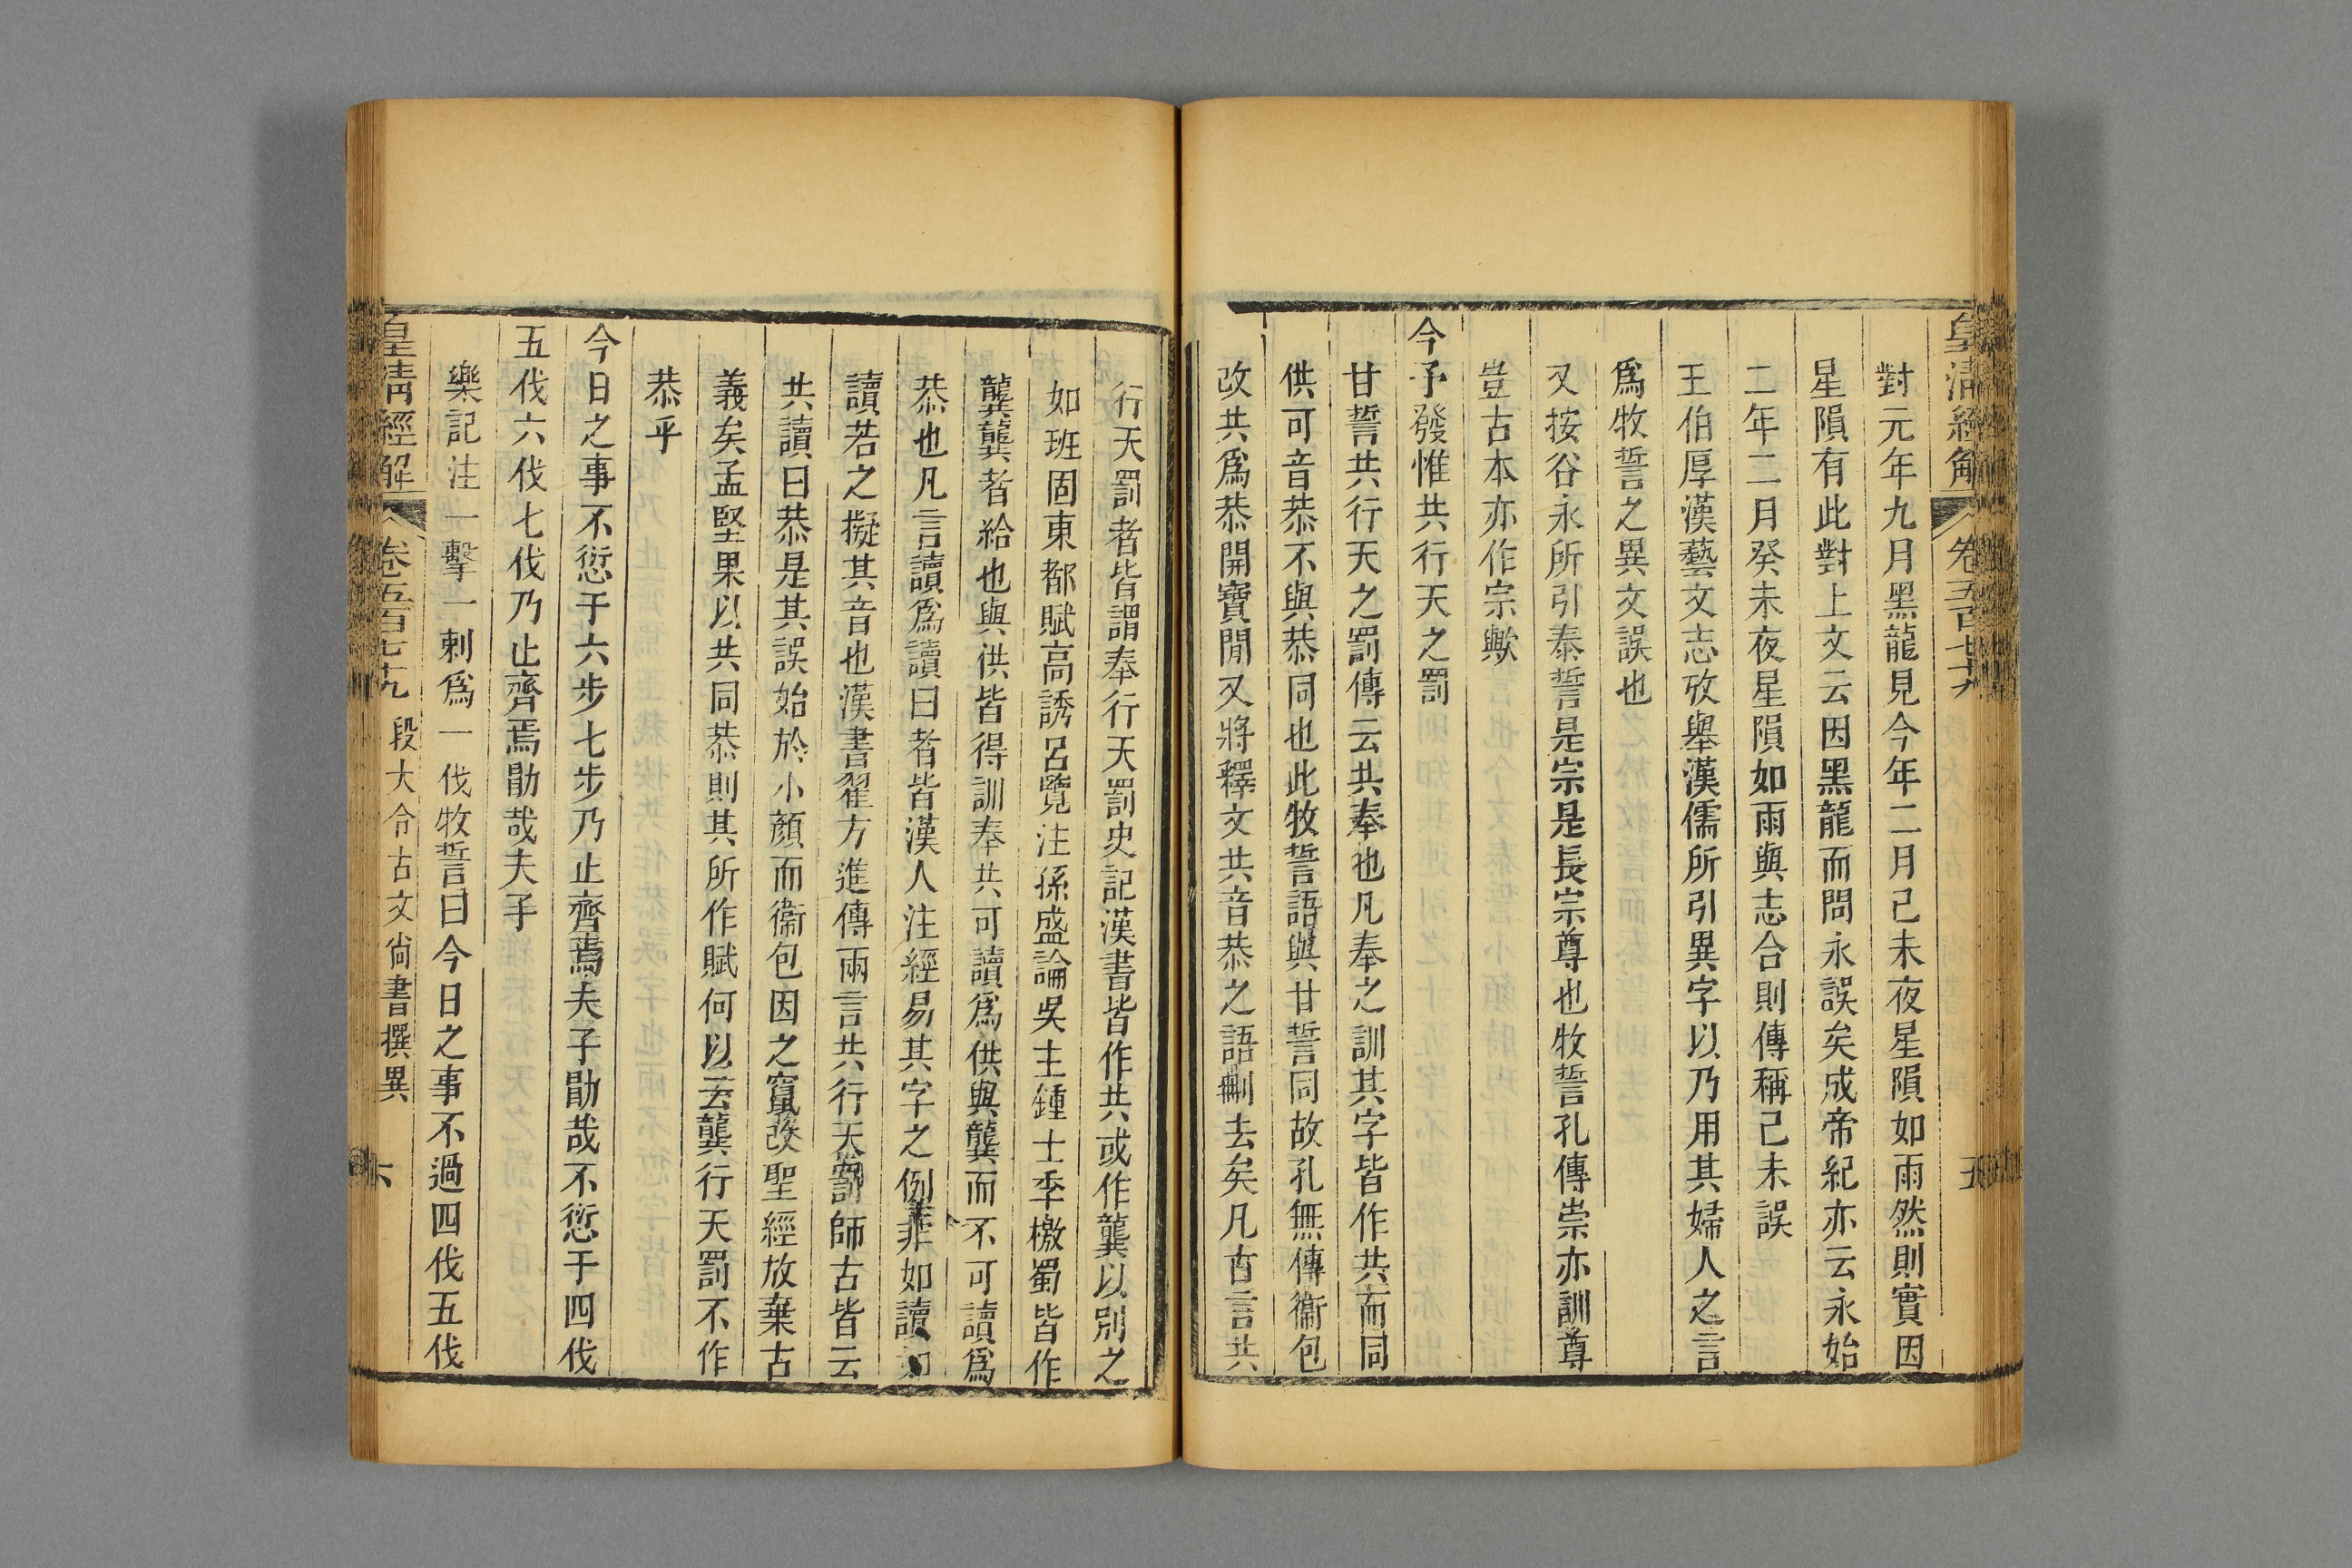 皇清經解 卷五百七十九 五
對元年九月黑龍見今年二月己未夜星隕如雨然則實因
星隕有此對上文云因黑龍而問永誤矣成帝紀亦云永始
二年二月癸未夜星隕如雨與志合則傳稱己未誤
王伯厚漢藝文志攷舉漢儒所引異字以乃用其婦人之言
爲牧誓之異文誤也
又按谷永所引泰誓是宗是長宗尊也牧誓孔傳崇亦訓尊
豈古本亦作宗歟
今予發惟共行天之罰
甘誓共行天之罰傳云共奉也凡奉之訓其字皆作共而同
供可音恭不與恭同也此牧誓語與甘誓同故孔無傳衞包
改共爲恭開寶閒又將釋文共音恭之語刪去矣凡古言共
行天罰者皆謂奉行天罰史記漢書皆作共或作龔以別之
如班固東都賦高誘呂覽注孫盛論吳主鍾士季檄蜀皆作
龔龔者給也與供皆得訓奉共可讀爲供與龔而不可讀爲
恭也凡言讀爲讀曰者皆漢人注經易其字之例非如讀如
讀若之擬其音也漢書翟方進傳兩言共行天罰師古皆云
共讀曰恭是其誤始於小顏而衞包因之竄改聖經放棄古
義矣孟堅果以共同恭則其所作賦何以云龔行天罰不作
恭乎
今日之事不愆于六步七步乃止齊焉夫子勖哉不愆于四伐
五伐六伐七伐乃止齊焉勖哉夫子
樂記注一擊一刺爲一伐牧誓曰今日之事不過四伐五伐
皇清經解 卷五百七十九 段大令古文尙書撰異 六